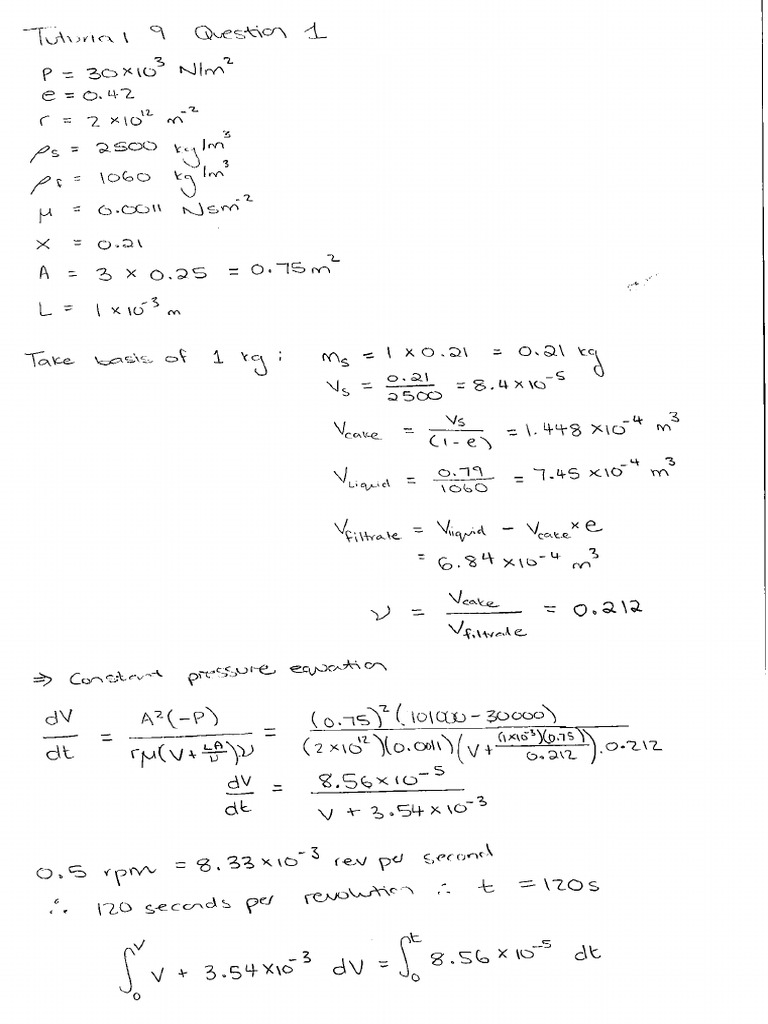 Tutorial 9 Question 1
P = 30×10³ N/m²
e = 0.42
r = 2 ×10¹² m⁻²
ρs = 2500 kg/m³
ρf = 1060 kg/m³
μ = 0.0011 Nsm⁻²
x = 0.21
A = 3 × 0.25 = 0.75m²
L = 1×10⁻³ m
Take basis of 1 kg: ms = 1 × 0.21 = 0.21 kg
Vs = 0.21/2500 = 8.4×10⁻⁵
Vcake = Vs/(1-e) = 1.448 ×10⁻⁴ m³
VLiquid = 0.79/1060 = 7.45 ×10⁻⁴ m³
Vfiltrate = Vliquid - Vcake × e
= 6.84 ×10⁻⁴ m³
ν = Vcake/Vfiltrate = 0.212
⇒ Constant pressure equation
dV/dt = A²(-P)/rμ(V+LA/ν)ν = (0.75)²(101000-30000)/(2×10¹²)(0.0011)(V+(1×10⁻³)(0.75)/0.212).0.212
dV/dt = 8.56×10⁻⁵/V + 3.54×10⁻³
0.5 rpm = 8.33×10⁻³ rev per second
∴ 120 seconds per revolution ∴ t = 120s
∫₀ⱽ V + 3.54×10⁻³ dV = ∫₀ᵗ 8.56 ×10⁻⁵ dt